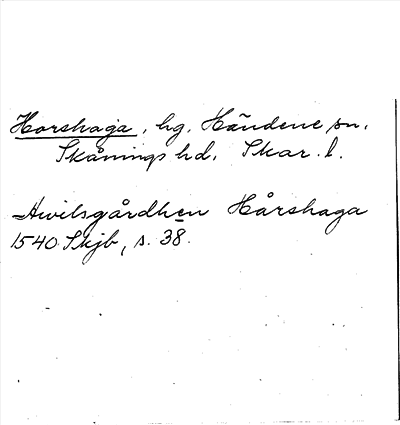 Horshaga, hg. Händene sn.
Skånings hd. Skar. l.
Hwilsgårdhen Hårshaga
1540 Skjb, s. 38.